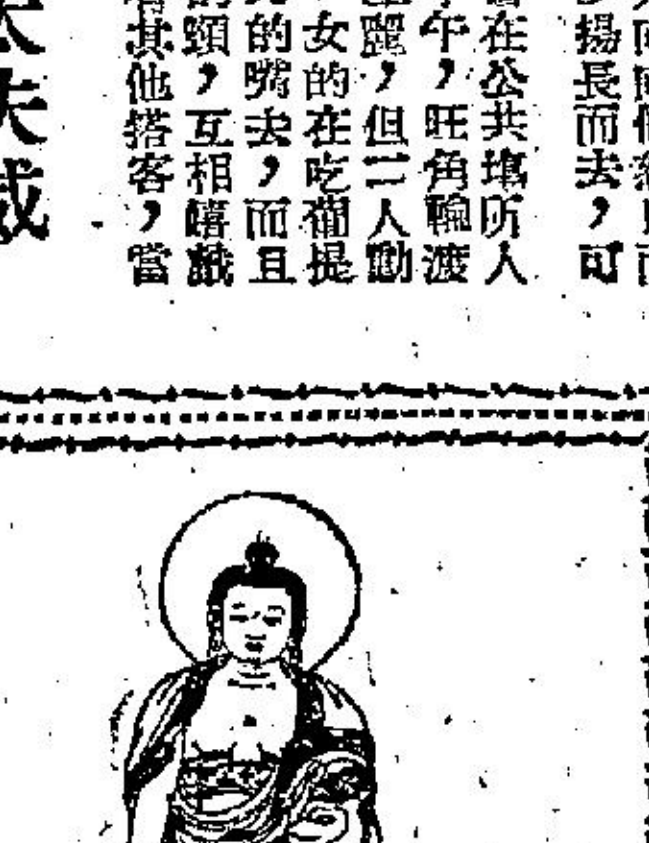 揚長而去，可
在公共塲所人
午，旺角輪渡
麗，但二人動
女的在吃葡提
的嘴去，而且
，互相嬉戲
其他搭客，當
夫威